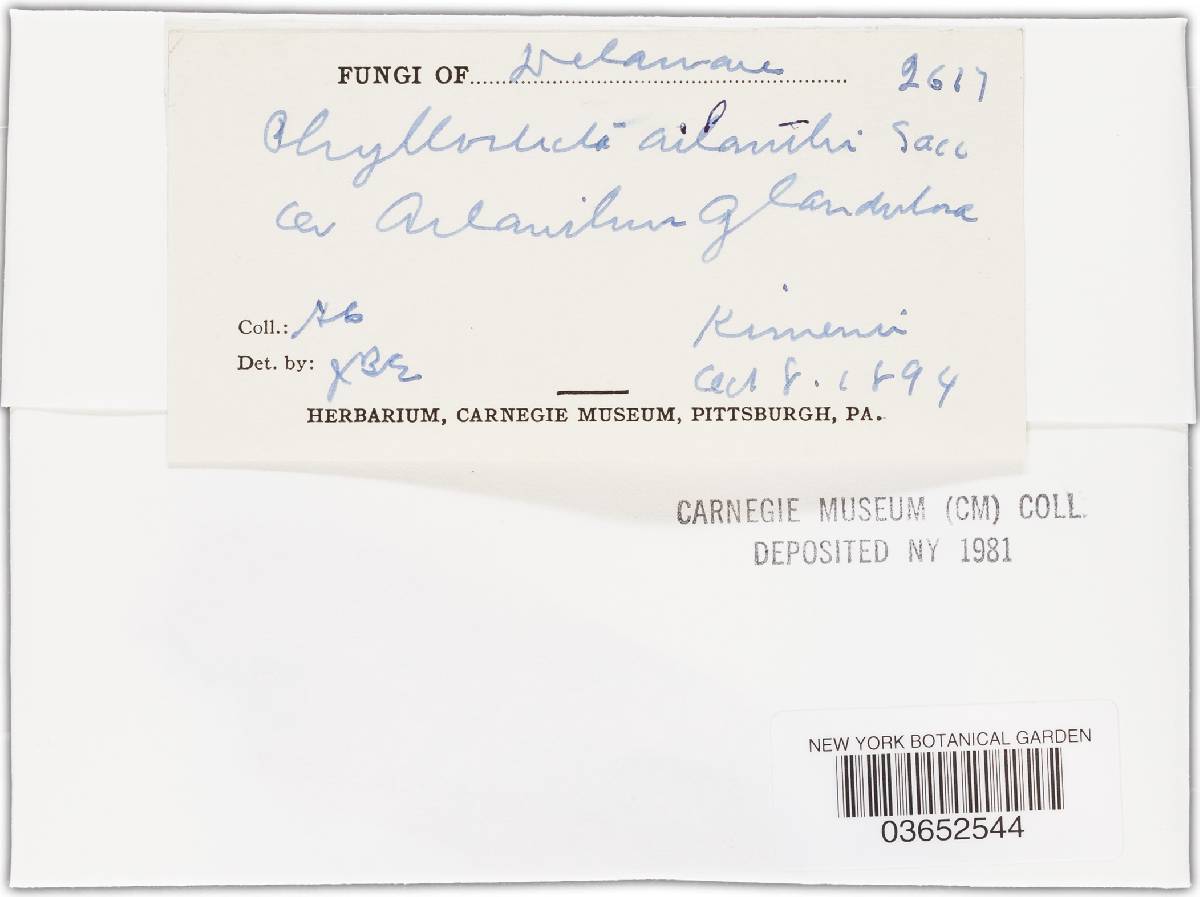 FUNGI OF Delaware 2617
Phyllosticta ailanthi Sacc
on Ailanthus glandulosa
Coll.:
Det. by: JBE
Oct 8. 1894
HERBARIUM, CARNEGIE MUSEUM, PITTSBURGH, PA.
CARNEGIE MUSEUM (CM) COLL.
DEPOSITED NY 1981
NEW YORK BOTANICAL GARDEN
03652544